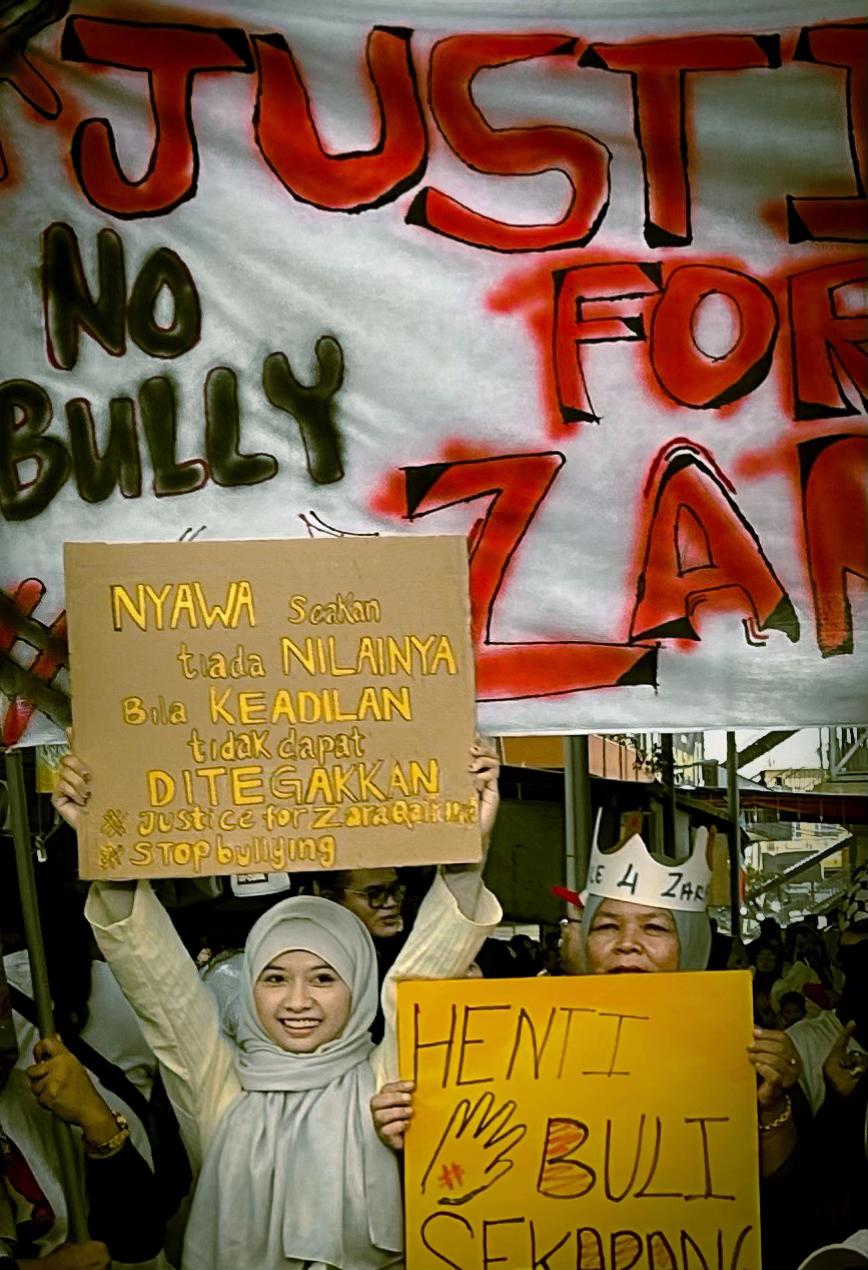 JUSTI
FOR
ZAR
NO
BULLY
NYAWA Seakan
tiada NILAINYA
Bila KEADILAN
tidak dapat
DITEGAKKAN
# Justice for Zara Qairina
# STOP bullying
LE 4 ZAR
HENTI
# BULI
SEKARANG